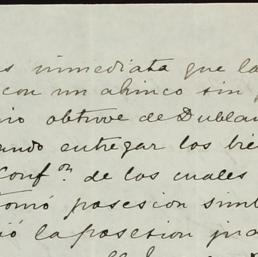 s inmediata que la
con un ahinco sin
io obtuve de Dublan
ando entregar los bie
Conf.on de los cuales
tomó posesion simb
ió la posesion